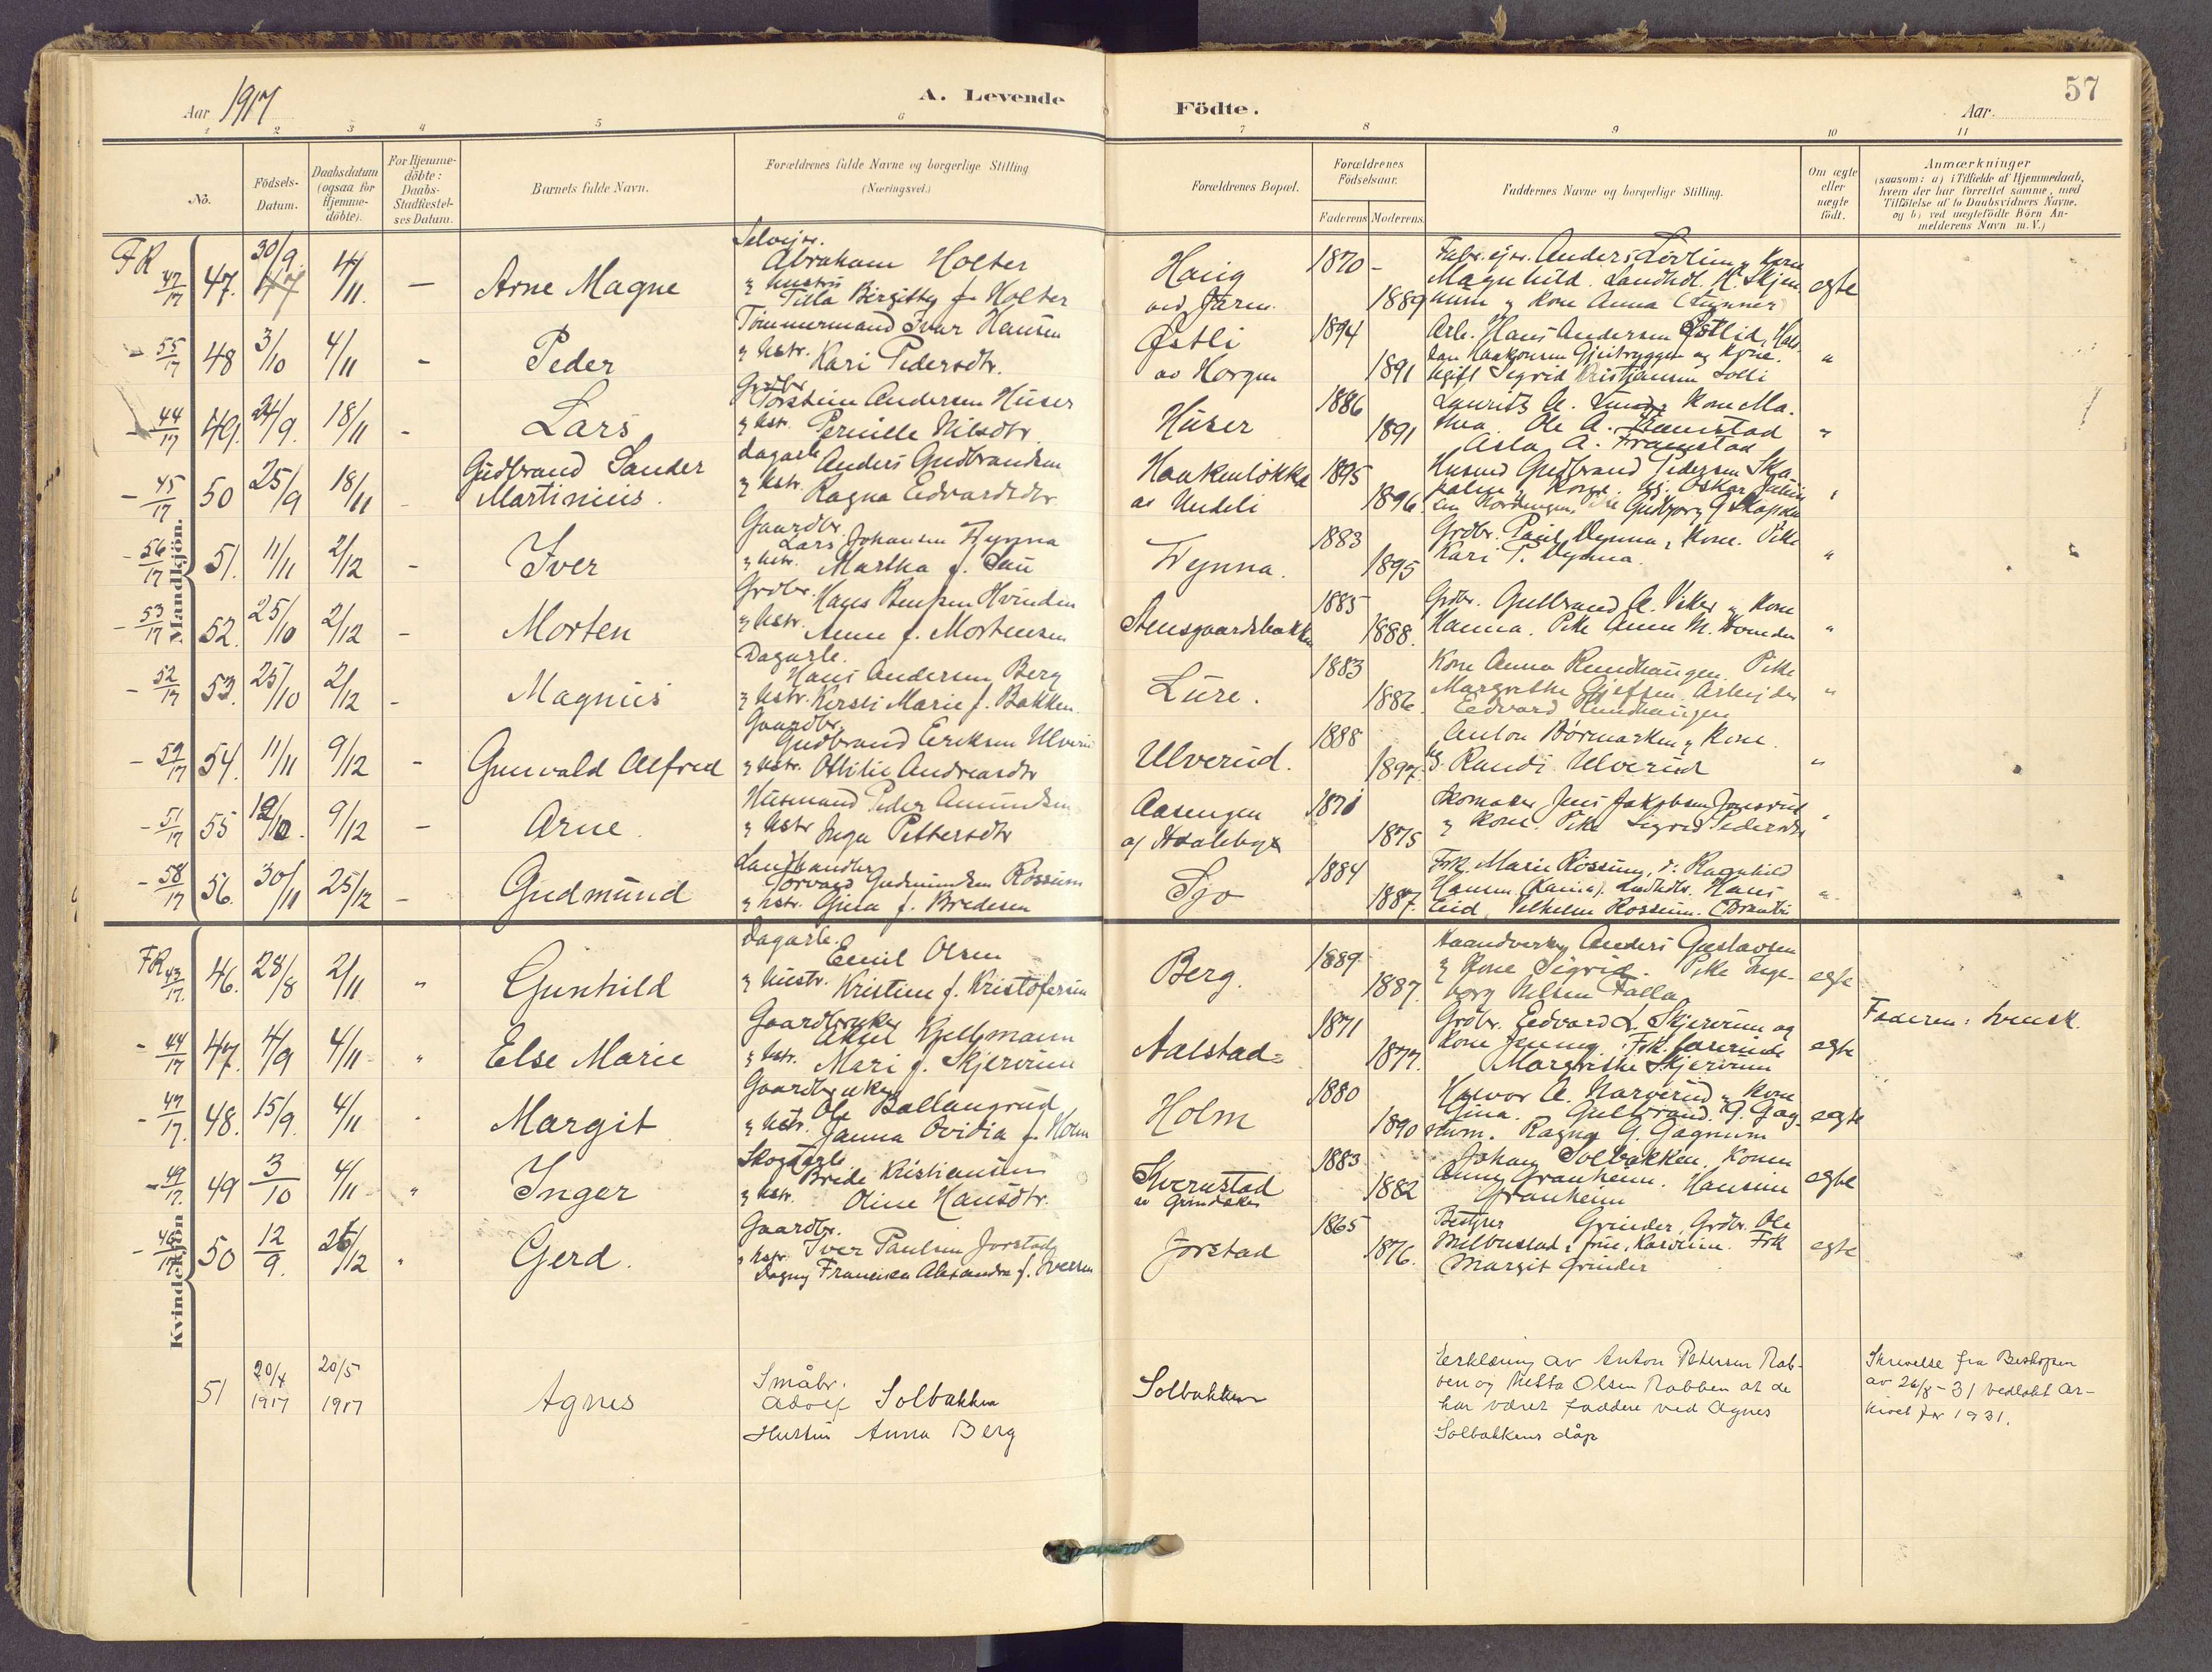 57
Aar 1917
A. Levende Födte.
Aar.
1 2 3 4 5 6 7 8 9 10 11
No.
Födsels-
Datum.
Daabsdatum
(ogsaa for
Hjemme-
döbte).
For Hjemme-
döbte:
Daabs-
Stadfæstel-
ses Datum.
Barnets fulde Navn.
Forældrenes fulde Navne og borgerlige Stilling
(Næringsvei.)
Forældrenes Bopæl.
Forældrenes
Födselsaar.
Faderens Moderens.
Faddernes Navne og borgerlige Stilling.
Om ægte
eller
uægte
födt.
Anmærkninger
(saasom: a) i Tilfælde af Hjemmedaab,
hvem der har forrettet samme, med
Tilföielse af to Daabsvidners Navne.
og b) ved uægtefödte Börn An-
melderens Navn m. V.)
Mandkjön.
FR 47/17 47. 30/9 4/11. — Arne Magne
Selvejer.
Abraham Holter
& hustru
Tilla Birgitte f. Holter
Haug
ved Jaren
1870 - 1889
Fabr. ejer. Anders Lövlien & Kone
Magnhild. Landhdl. H. Skjen-
num & Kone Anna (Lunner)
egte
- 55/17 48 3/10 4/11 - Peder
Tömmermand Ivar Hansen
& hstr. Kari Pedersdtr.
Östli
av Horgen
1894 1891
Arb. Hans Andersen Östlid, Hal-
dan Haakonsen Gjeitryggen og Kone.
Ugift Sigrid Kristiansen Solli
"
- 44/17 49. 24/9. 18/11 - Lars
Grdbr
Torstein Andersen Huser
& hstr. Pernille Nilsdtr.
Huser
1886 1891
Laurits A. Kone Ma-
thea. Ole A. Framstad
Asla A. Framstad
"
- 45/17 50 25/9 18/11 - Gudbrand Sander
Martinius.
dagarb. Anders Gudbrandsen
& hstr. Ragna Edvardsdtr.
Haakenlökka
av Undeli
1895 1896
Husmd Gudbrand Pedersen Ska-
"
- 56/17 51. 11/11 2/12 - Iver
Gaardbr.
Lars Johansen Tynna
& hstr. Martha f.
Tynna.
1883 1895
Grdbr. Paul Dynna, Kone. Pike
Kari P. Dynna.
"
- 53/17 52. 25/10 2/12 - Morten
Grdbr. Hans Bentsen Hvinden
& hstr. Anne f. Mortensen
Stensgaardsbakken
1885 1888.
Grdbr. Gulbrand A. Viker & Kone
Hanna. Pike Anne M. Hvinden
"
- 52/17 53. 25/10 2/12 - Magnus
Dagarb.
Hans Andersen Berg
& hstr. Kersti Marie f. Bakken.
Lure.
1883 1886.
Kone Anna Rundhaugen. Pike
Margrethe Gjefsen. Arbejder
Edvard Rundhaugen
"
- 59/17 54. 11/11 9/12 - Gunvald Alfred
Gaardbr.
Gudbrand Eriksen Ulverud
& hstr. Othilie Andreasdtr
Ulverud.
1888 1897.
Anton Börmarken & Kone.
Ug. Randi Ulverud
"
- 51/17 55 12/10. 9/12 - Arne.
Husmand Peder Amundsen
& hstr Inga Pettersdtr
Aasengen
af
1870 1875
Skomaker Jens Jakobsen
& Kone. Pike Sigrid Pedersdtr
"
- 58/17 56. 30/11 25/12 - Gudmund
Landhandler
Torvald Gudmundsen Rossum
& hstr. Gina f. Bredesen
Sgo
1884 1887.
Frk. Marie Rossum, Fr. Ragnhild
Hamm. Landhdlr. Hans
Eid, Vilhelm Rossum. (Brandbu
"
Kvindekjön
FR 43/17. 46. 28/8 2/11 " Gunhild
Dagarb.
Emil Olsen
& hustr. Kristine f. Kristofersen
Berg.
1889 1887.
Haandverker Anders Gustavsen
& Kone Sigrid. Pike Inge-
borg Nilsen Falla
egte
Faderen: Svensk.
- 44/17 47. 4/9 4/11 - " Else Marie
Gaardbruker
Aksel Kjellmann
& hstr. Mari f. Skjervum
Aalstad
1871 1877.
Grdbr. Edvard L. Skjervum og
Kone Jenny. Frk. lærerinde
Margrethe Skjervum
egte
- 47/17. 48. 15/9. 4/11 " Margit
Gaardbruker
Ole Ballangrud
& hstr. Janna Ovidia f. Holm
Holm
1880 1890
Halvor A. Narverud & Kone
Gina. Gulbrand G. Gag-
num. Ragna G. Gagnum
egte
- 49/17. 49 3/10 4/11 - " Inger
Skogsarb.
Brede Kristiansen
& hstr. Oline Hansdtr.
Kvernstad
av Grindaker
1883 1882
Johan Solbakken. Konen
Anny Granheim. Hansine
Granheim
egte
- 46/17 50 12/9. 26/12 " Gerd.
Gaardbr.
Iver Paulsen Jorstad
& hstr.
Dagny Francisca Alexandra f. Iversen
Jorstad
1865 1876.
Bestyrer Grinder, Grdbr. Ole
Milbustad, frue, Karoline. Frk
Margit Grinder
egte
51 20/4 1917 20/5 1917 Agnes
Småbr.
Adolf Solbakken
Hustru Anna Berg
Solbakken
Erklæring av Anton Petersen Rab-
ben og Netta Olsen Rabben at de
har været faddere ved Agnes
Solbakkens dåp
Skrivelse fra Biskopen
av 26/8-31 vedlakt ar-
kivet for 1931.